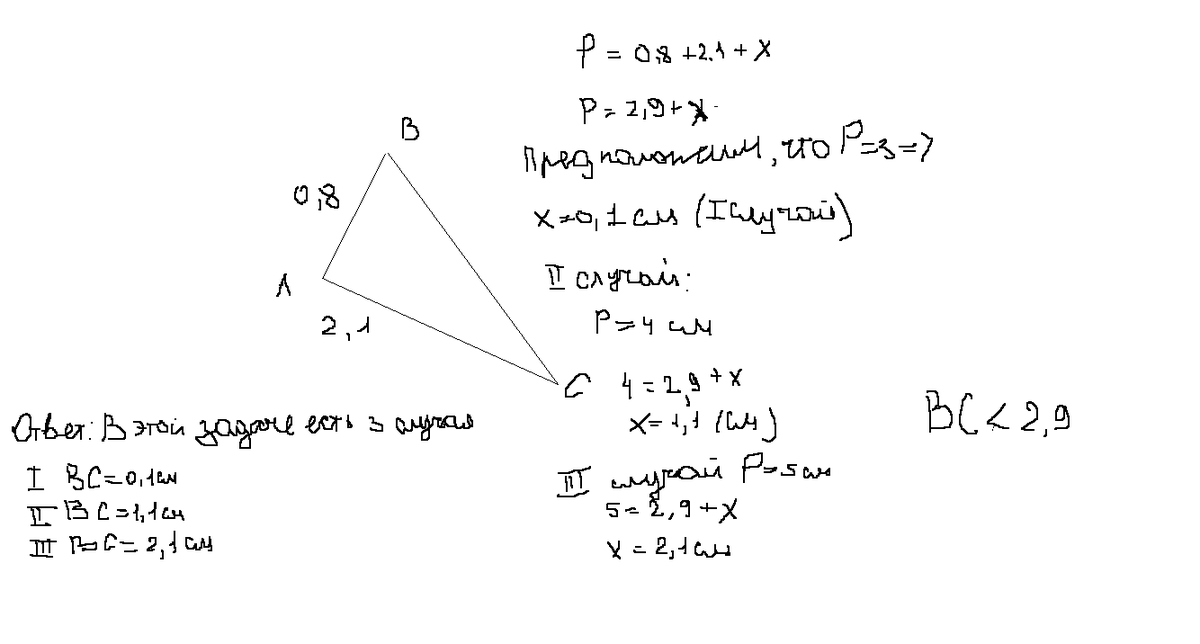 P = 0,8 + 2.1 + x
P = 2,9 + x
Предположим, что P = 3 =>
x = 0,1 см (I случай)
II случай:
P = 4 см
4 = 2,9 + x
x = 1,1 (см)
III случай P = 5 см
5 = 2,9 + x
x = 2,1 см
B
0,8
A
2,1
C
BC < 2,9
Ответ: В этой задаче есть 3 случая
I BC = 0,1 см
II BC = 1,1 см
III BC = 2,1 см